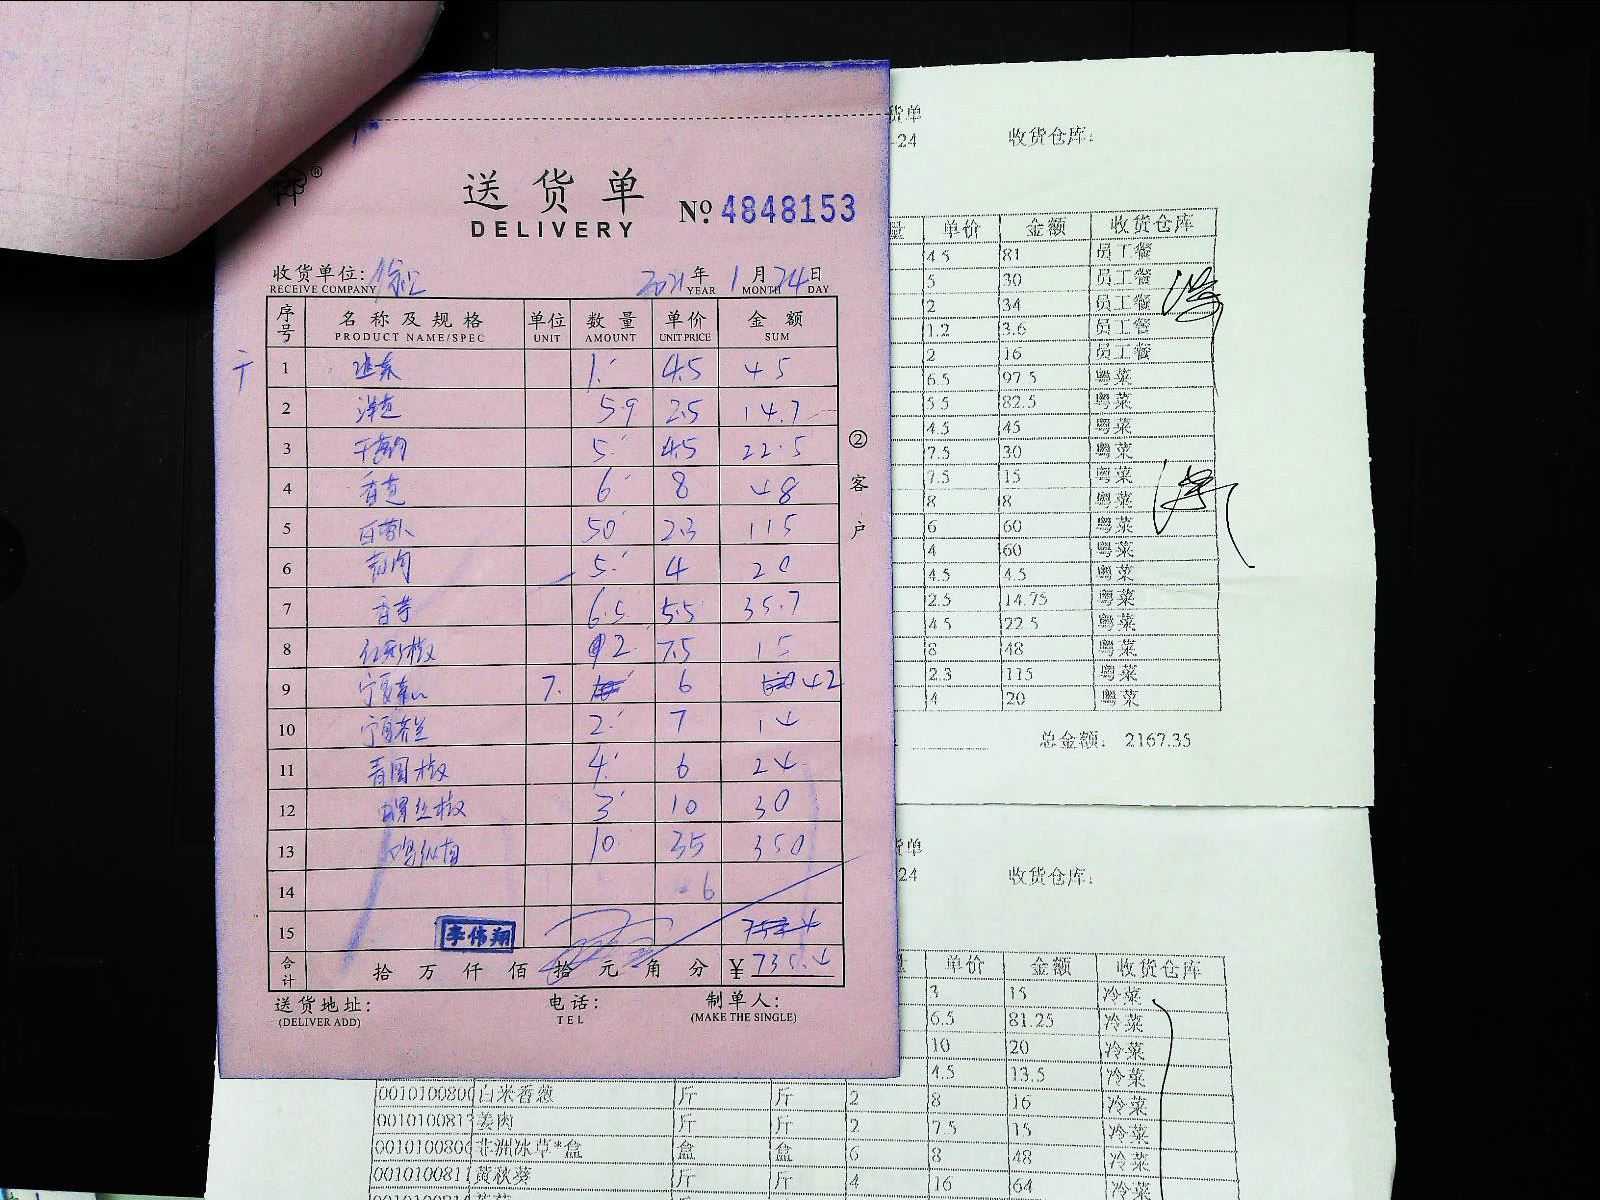 送货单
DELIVERY
№ 4848153
收货单位:
RECEIVE COMPANY
2021年 1月 24日
YEAR MONTH DAY
序号 名称及规格 单位 数量 单价 金额
PRODUCT NAME/SPEC UNIT AMOUNT UNIT PRICE SUM
1 1. 4.5 4 5
2 洋葱 5.9 2.5 14.7
3 5. 4.5 22.5
4 香芝 6 8 48
5 50 2.3 115
6 5. 4 20
7 香芋 6.5 5.5 35.7
8 红彩椒 2 7.5 15
9 宁夏菜心 7. 6 42
10 宁夏芥兰 2. 7 14
11 青圆椒 4. 6 24
12 螺丝椒 3 10 30
13 鸡纵菌 10 35 350
14 6
15
李伟翔
合计 拾 万 仟 佰 拾 元 角 分 ¥735.4
送货地址:
(DELIVER ADD)
电话:
TEL
制单人:
(MAKE THE SINGLE)
②客户
货单
-24 收货仓库:
量 单价 金额 收货仓库
4.5 81 员工餐
5 30 员工餐
2 34 员工餐
1.2 3.6 员工餐
2 16 员工餐
6.5 97.5 粤菜
5.5 82.5 粤菜
4.5 45 粤菜
7.5 30 粤菜
7.5 15 粤菜
8 8 粤菜
6 60 粤菜
4 60 粤菜
4.5 4.5 粤菜
2.5 14.75 粤菜
4.5 22.5 粤菜
8 48 粤菜
2.3 115 粤菜
4 20 粤菜
总金额: 2167.35
货单
24 收货仓库:
量 单价 金额 收货仓库
3 15 冷菜
6.5 81.25 冷菜
10 20 冷菜
4.5 13.5 冷菜
001010080 白米香葱 斤 斤 2 8 16 冷菜
001010081 姜肉 斤 斤 2 7.5 15 冷菜
001010080 非洲冰草*盒 盒 盒 6 8 48 冷菜
001010081 黄秋葵 斤 斤 4 16 64 冷菜